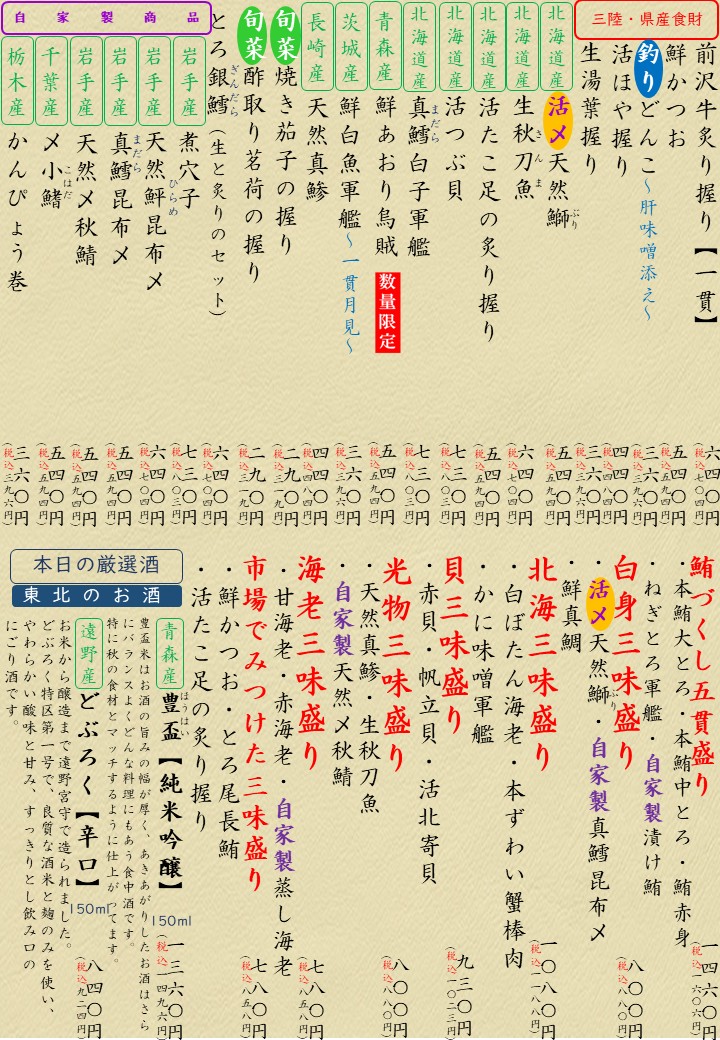 三陸・県産食財
前沢牛炙り握り【一貫】 六四〇円 (税込七〇四円)
鮮かつお 五四〇円 (税込五九四円)
釣りどんこ〜肝味噌添え〜 三六〇円 (税込三九六円)
活ほや握り 四四〇円 (税込四八四円)
生湯葉握り 三六〇円 (税込三九六円)
北海道産 活〆天然鰤 ぶり 五四〇円 (税込五九四円)
北海道産 生秋刀魚 さんま 六四〇円 (税込七〇四円)
北海道産 活たこ足の炙り握り 五四〇円 (税込五九四円)
北海道産 活つぶ貝 七三〇円 (税込八〇三円)
北海道産 真鱈白子軍艦 まだら 七三〇円 (税込八〇三円)
青森産 鮮あおり烏賊 数量限定 五四〇円 (税込五九四円)
茨城産 鮮白魚軍艦〜一貫月見〜 三六〇円 (税込三九六円)
長崎産 天然真鯵 四四〇円 (税込四八四円)
旬菜 焼き茄子の握り 二九〇円 (税込三一九円)
旬菜 酢取り茗荷の握り 二九〇円 (税込三一九円)
とろ銀鱈(生と炙りのセット) ぎんだら 六四〇円 (税込七〇四円)
自家製商品
岩手産 煮穴子 七三〇円 (税込八〇三円)
岩手産 天然鮃昆布〆 ひらめ 六四〇円 (税込七〇四円)
岩手産 真鱈昆布〆 まだら 五四〇円 (税込五九四円)
岩手産 天然〆秋鯖 五四〇円 (税込五九四円)
千葉産 〆小鰭 こはだ 五四〇円 (税込五九四円)
栃木産 かんぴょう巻 三六〇円 (税込三九六円)
鮪づくし五貫盛り 一四六〇円 (税込一六〇六円)
・本鮪大とろ・本鮪中とろ・鮪赤身
・ねぎとろ軍艦・自家製漬け鮪
白身三味盛り 八〇〇円 (税込八八〇円)
・活〆天然鰤・自家製真鱈昆布〆 ぶり
・鮮真鯛
北海三味盛り 一〇八〇円 (税込一一八八円)
・白ぼたん海老・本ずわい蟹棒肉
・かに味噌軍艦
貝三味盛り 九三〇円 (税込一〇二三円)
・赤貝・帆立貝・活北寄貝
光物三味盛り 八〇〇円 (税込八八〇円)
・天然真鯵・生秋刀魚
・自家製天然〆秋鯖
海老三味盛り 七八〇円 (税込八五八円)
・甘海老・赤海老・自家製蒸し海老
市場でみつけた三味盛り 七八〇円 (税込八五八円)
・鮮かつお・とろ尾長鮪
・活たこ足の炙り握り
本日の厳選酒
東北のお酒
青森産 豊盃【純米吟醸】 ほうはい 150ml 一三六〇円 (税込一四九六円)
豊盃米はお酒の旨みの幅が厚く、あきあがりしたお酒はさら
にバランスよくどんな料理にもあう食中酒です。
特に秋の食材とマッチするように仕上がってます。
遠野産 どぶろく【辛口】 150ml 八四〇円 (税込九二四円)
お米から醸造まで遠野宮守で造られました。
どぶろく特区第一号で、良質な酒米と麹のみを使い、
やわらかい酸味と甘み、すっきりとし飲み口の
にごり酒です。